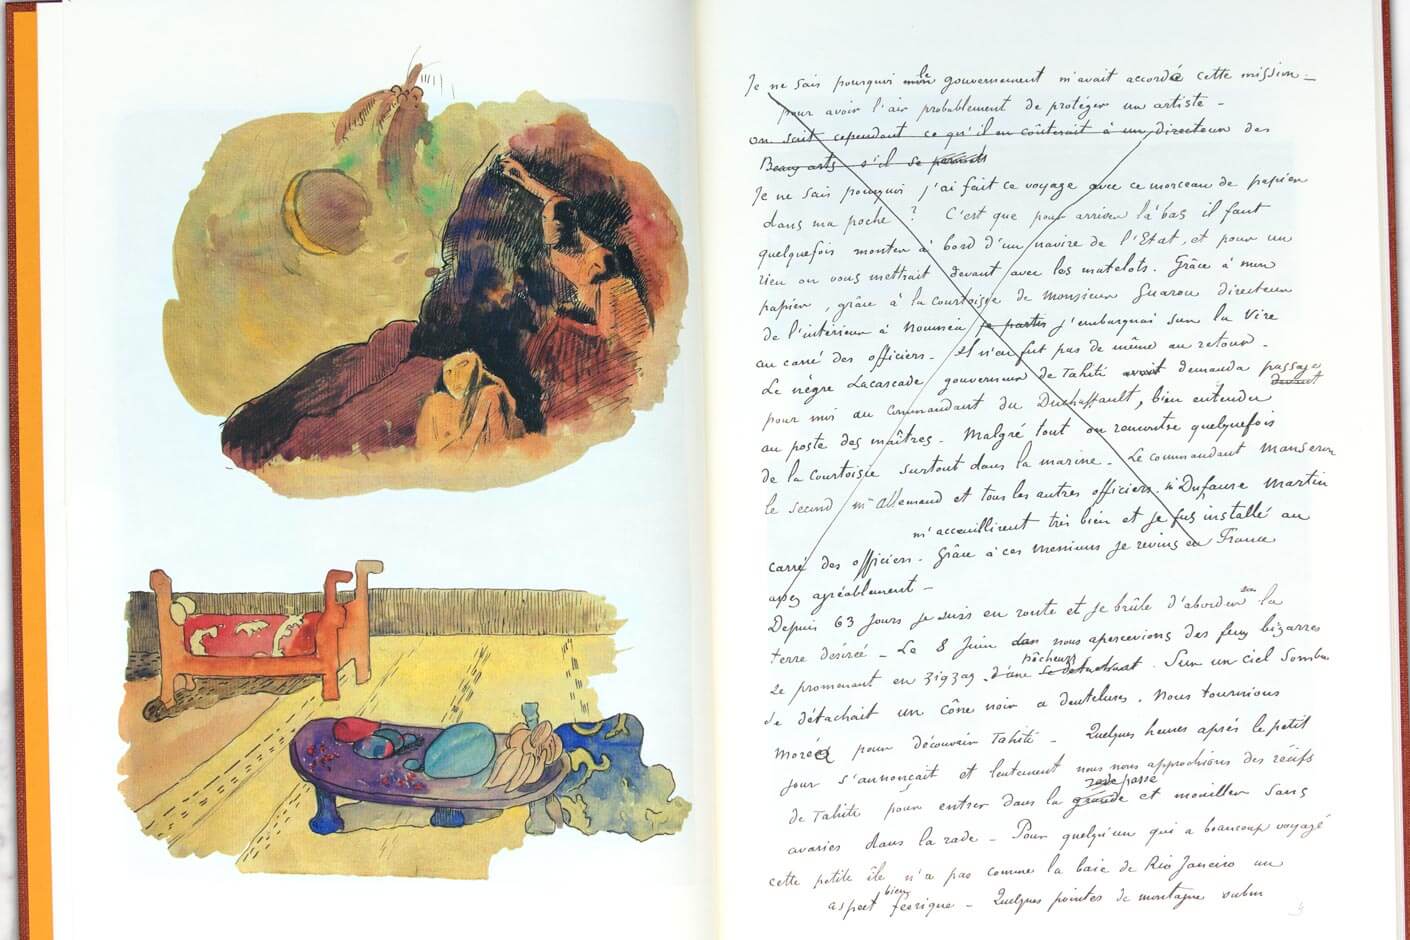 Je ne sais pourquoi le gouvernement m'avait accordé cette mission —
pour avoir l'air probablement de protéger un artiste —
on sait cependant ce qu'il en coûterait à un directeur des
Beaux arts s'il se permet
Je ne sais pourquoi j'ai fait ce voyage avec ce morceau de papier
dans ma poche ? C'est que pour arriver là bas il faut
quelquefois monter à bord d'un navire de l'Etat, et pour un
rien on vous mettrait devant avec les matelots. Grâce à mon
papier, grâce à la courtoisie de Monsieur directeur
de l'intérieur à Nouméa je partis j'embarquai sur la Vire
au carré des officiers. Il n'en fut pas de même au retour.
Le nègre Lacascade gouverneur de Tahiti avait demanda passage
devant
pour moi au commandant du Duchaffault, bien entendu
au poste des maîtres. Malgré tout on rencontre quelquefois
de la courtoisie surtout dans la marine. Le commandant
le second Mr Allemand et tous les autres officiers, Mr Dufaure Martin
m'accueillirent très bien et je fus installé au
carré des officiers. Grâce à ces messieurs je revins en France
assez agréablement —
Depuis 63 jours je suis en route et je brûle d'aborder la
terre désirée — Le 8 Juin nous apercevions des feux bizarres
se promenant en zigzag. pêcheurs Sur un ciel sombre
se détachait un cône noir a dentelures. Nous tournions
Moréa pour découvrir Tahiti — Quelques heures après le petit
jour s'annonçait et lentement nous nous approchions des récifs
rade passe
de Tahiti pour entrer dans la grande et mouiller sans
avaries dans la rade — Pour quelqu'un qui a beaucoup voyagé
cette petite île n'a pas comme la baie de Rio Janeiro un
aspect bien féerique — Quelques pointes de montagne